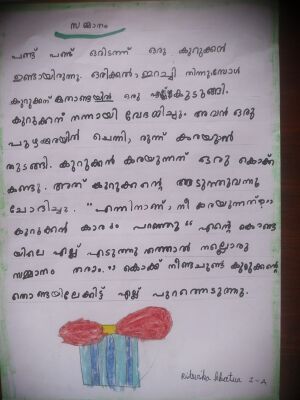 സമ്മാനം
പണ്ട് പണ്ട് ഒരിടത്ത് ഒരു കുറുക്കൻ
ഉണ്ടായിരുന്നു. ഒരിക്കൽ, ഇറച്ചി തിന്നുമ്പോൾ
കുറുക്കന് തൊണ്ടയിൽ ഒരു എല്ല് കുടുങ്ങി.
കുറുക്കന് നന്നായി വേദനിച്ചു. അവൻ ഒരു
പുഴക്കരയിൽ ചെന്ന്, ഇരുന്ന് കരയുവാൻ
തുടങ്ങി. കുറുക്കൻ കരയുന്നത് ഒരു കൊക്ക്
കണ്ടു. അത് കുറുക്കന്റെ അടുത്തുവന്നു
ചോദിച്ചു. "എന്തിനാണ് നീ കരയുന്നത്?"
കുറുക്കൻ കാര്യം പറഞ്ഞു "എന്റെ തൊണ്ട
യിലെ എല്ല് എടുത്തു തന്നാൽ നല്ലൊരു
സമ്മാനം തരാം." കൊക്ക് നീണ്ടചുണ്ട് കുറുക്കന്റെ
തൊണ്ടയിലേക്കിട്ട് എല്ല് പുറത്തെടുത്തു.
2-A